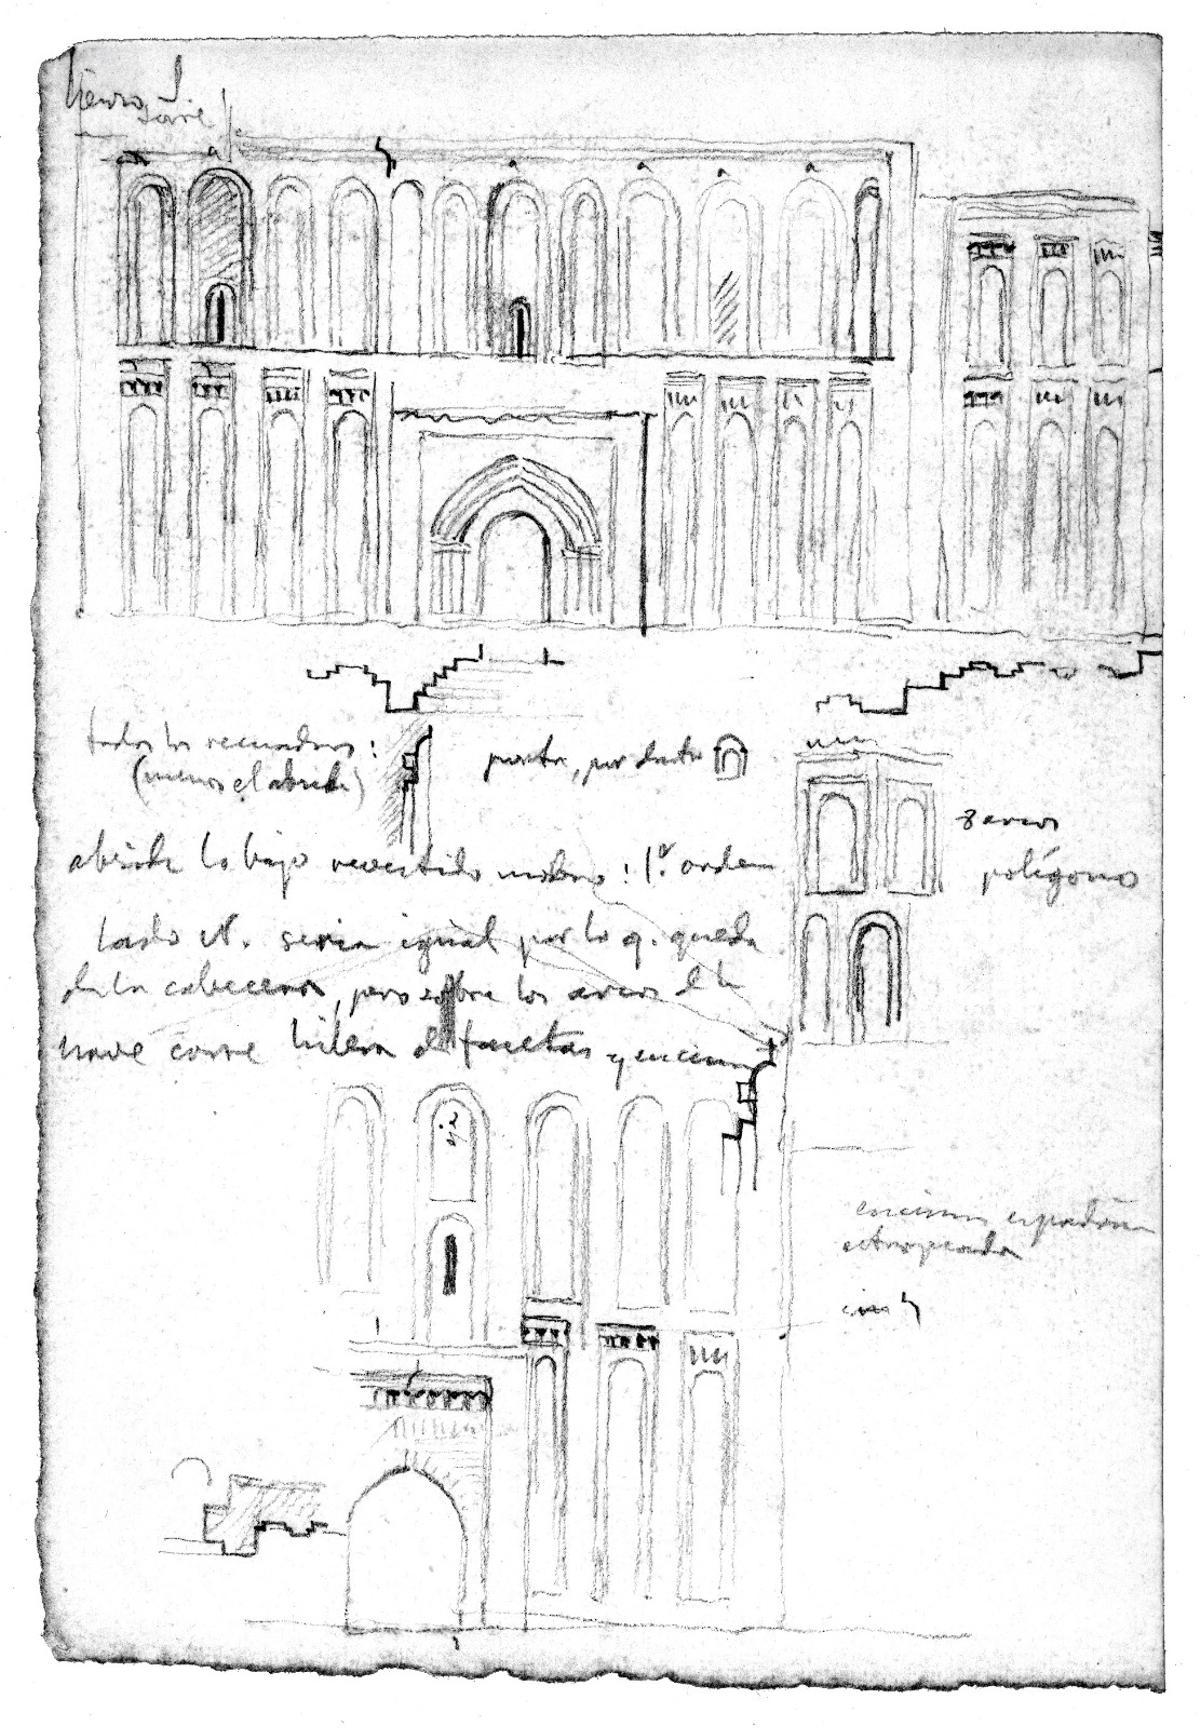 todos los recuadros :
(menos el ábside)
puerta, por dentro
8 arcos
polígono
abside lo bajo revestido moderno : 1º. orden
Lado N. seria igual por lo q. queda
de la cabecera, pero sobre los arcos de la
nave corre hilera de facetas y encima
encima espadaña
estropeada